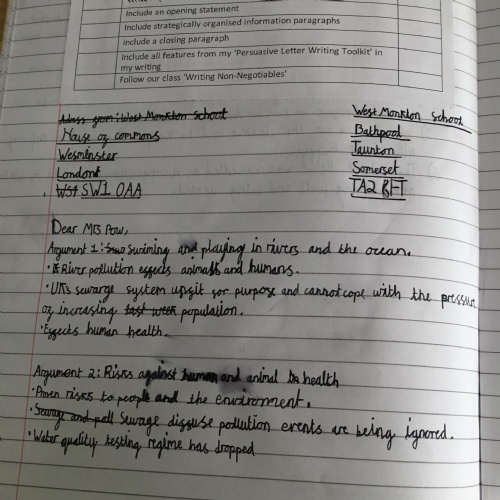 Include an opening statement
Include strategically organised information paragraphs
Include a closing paragraph
Include all features from my 'Persuasive Letter Writing Toolkit' in
my writing
Follow our class 'Writing Non-Negotiables'
Adress from: West Monkton School
West Monkton School
House of commons
Bathpool
Wesminster
Taunton
London
Somerset
SW1 0AA
TA2 8FT
Dear Mrs Pow,
Argument 1: Swiming and playing in rivers and the ocean.
• River pollution effects animals and humans.
• UKs sewarge system unfit for purpose and cannot cope with the pressure
of increasing population.
• Effects human health.
Argument 2: Risks against human and animal health
• Proven risks to people and the environment.
• Sewage and poll Sewage diffuse pollution events are being ignored.
• Water quality testing regime has dropped